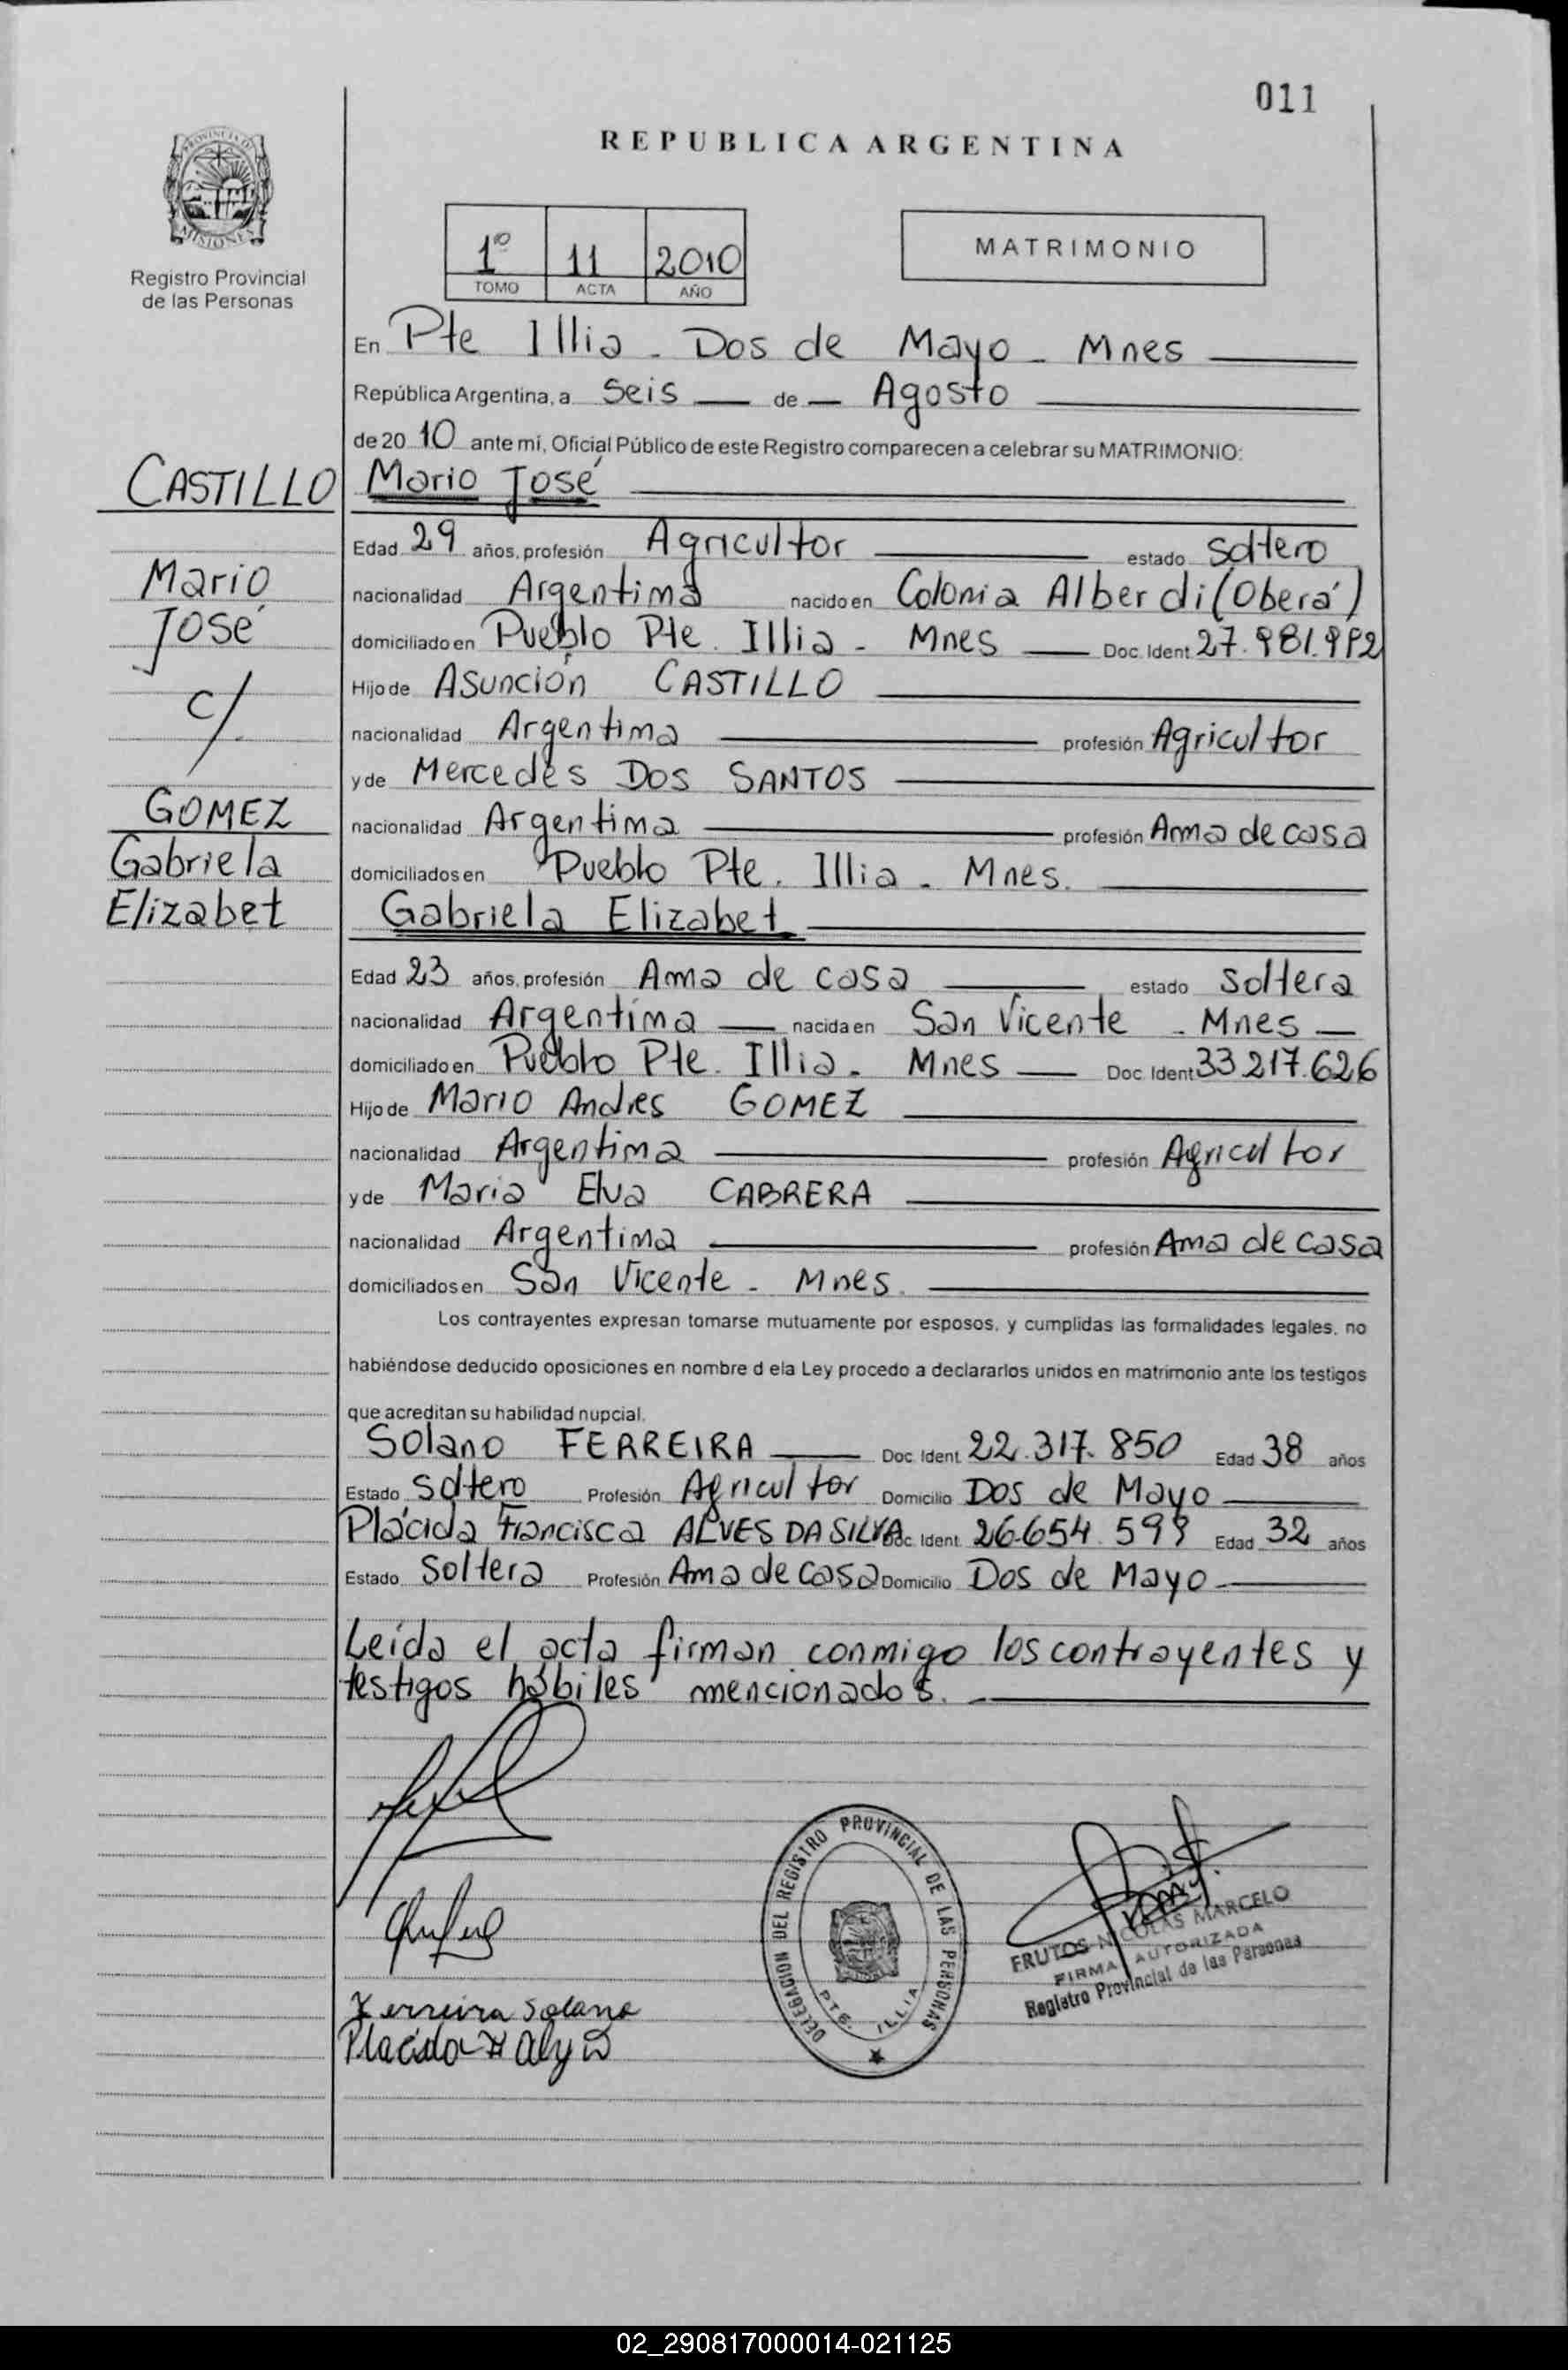 011
REPUBLICA ARGENTINA
PROVINCIA D MISIONES
Registro Provincial
de las Personas
1º 11 2010
TOMO ACTA AÑO
MATRIMONIO
En Pte Illia - Dos de Mayo - Mnes
República Argentina, a seis de Agosto
de 20 10 ante mi, Oficial Público de este Registro comparecen a celebrar su MATRIMONIO:
CASTILLO Mario José
Edad 29 años, profesión Agricultor estado soltero
Mario nacionalidad Argentina nacido en Colonia Alberdi (Oberá)
José domiciliado en Pueblo Pte. Illia - Mnes Doc. Ident
Hijo de Asunción CASTILLO
c/. nacionalidad Argentina profesión Agricultor
y de Mercedes DOS SANTOS
GOMEZ nacionalidad Argentina profesión Ama de casa
Gabriela domiciliados en Pueblo Pte. Illia - Mnes.
Elizabet Gabriela Elizabet
Edad 23 años, profesión Ama de casa estado soltera
nacionalidad Argentina nacida en San Vicente - Mnes
domiciliado en Pueblo Pte. Illia - Mnes Doc. Ident 33 217.626
Hijo de Mario Andres GOMEZ
nacionalidad Argentina profesión Agricultor
y de Maria Elva CABRERA
nacionalidad Argentina profesión Ama de casa
domiciliados en San Vicente - Mnes.
Los contrayentes expresan tomarse mutuamente por esposos, y cumplidas las formalidades legales, no
habiéndose deducido oposiciones en nombre d ela Ley procedo a declararlos unidos en matrimonio ante los testigos
que acreditan su habilidad nupcial.
Solano FERREIRA Doc. Ident. 22.317.850 Edad 38 años
Estado soltero Profesión Agricultor Domicilio Dos de Mayo
Plácida Francisca ALVES DA SILVA Doc. Ident. Edad 32 años
Estado Soltera Profesión Ama de casa Domicilio Dos de Mayo
Leída el acta firman conmigo los contrayentes y
testigos hábiles mencionados.
DELEGACION DEL REGISTRO PROVINCIAL DE LAS PERSONAS
PTE. ILLIA
FRUTOS NICOLAS MARCELO
FIRMA AUTORIZADA
Registro Provincial de las Personas
Ferreira Solano
Placida
02_290817000014-021125